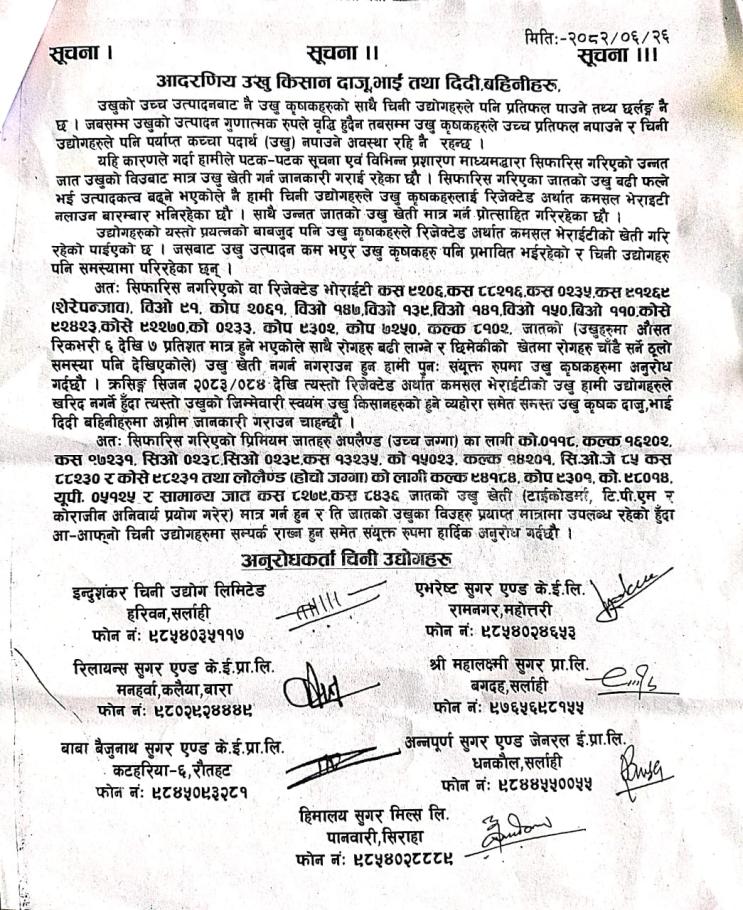 मितिः-२०८२/०६/२६
सूचना । सूचना ।। सूचना ।।।
आदरणिय उखु किसान दाजू,भाई तथा दिदी,बहिनीहरू,
उखुको उच्च उत्पादनबाट नै उखु कृषकहरुको साथै चिनी उद्योगहरुले पनि प्रतिफल पाउने तथ्य छर्लङ्ग नै
छ । जबसम्म उखुको उत्पादन गुणात्मक रुपले वृद्धि हुदैन तबसम्म उखु कृषकहरुले उच्च प्रतिफल नपाउने र चिनी
उद्योगहरुले पनि पर्याप्त कच्चा पदार्थ (उखु) नपाउने अवस्था रहि नै रहन्छ ।
यहि कारणले गर्दा हामीले पटक-पटक सूचना एवं विभिन्न प्रशारण माध्यमद्वारा सिफारिस गरिएको उन्नत
जात उखुको विउबाट मात्र उखु खेती गर्न जानकारी गराई रहेका छौ । सिफारिस गरिएका जातको उखु बढी फल्ने
भई उत्पादकत्व बढ्ने भएकोले नै हामी चिनी उद्योगहरुले उखु कृषकहरुलाई रिजेक्टेड अर्थात कमसल भेराइटी
नलाउन बारम्बार भनिरहेका छौ । साथै उन्नत जातको उखु खेती मात्र गर्न प्रोत्साहित गरिरहेका छौ ।
उद्योगहरुको यस्तो प्रयत्नको बाबजुद पनि उखु कृषकहरुले रिजेक्टेड अर्थात कमसल भेराईटीको खेती गरि
रहेको पाईएको छ । जसबाट उखु उत्पादन कम भएर उखु कृषकहरु पनि प्रभावित भईरहेको र चिनी उद्योगहरु
पनि समस्यामा परिरहेका छन् ।
अतः सिफारिस नगरिएको वा रिजेक्टेड भोराईटी कस ९२०६,कस ८८२१६,कस ०२३५,कस ९१२६९
(शेरेपन्जाव), विओ ९१, कोप २०६१, विओ १४७,विओ १३९,विओ १४१,विओ १५०,बिओ ११०,कोसे
९२४२३,कोसे ९२२७०,को ०२३३, कोप ९३०२, कोप ७२५०, कल्क ८१०२, जातको (उखुहरुमा औसत
रिकभरी ६ देखि ७ प्रतिशत मात्र हुने भएकोले साथै रोगहरु बढी लाग्ने र छिमेकीको खेतमा रोगहरु चाँडै सर्ने ठूलो
समस्या पनि देखिएकोले) उखु खेती नगर्न नगराउन हुन हामी पुनः संयूक्त रुपमा उखु कृषकहरुमा अनुरोध
गर्दछौ । क्रसिङ्ग सिजन २०८३/०८४ देखि त्यस्तो रिजेक्टेड अर्थात कमसल भेराईटीको उखु हामी उद्योगहरुले
खरिद नगर्ने हुँदा त्यस्तो उखुको जिम्मेवारी स्वयंम उखु किसानहरुको हुने व्यहोरा समेत समस्त उखु कृषक दाजु,भाई
दिदी बहिनीहरुमा अग्रीम जानकारी गराउन चाहन्छौ ।
अतः सिफारिस गरिएको प्रिमियम जातहरु अपलैण्ड (उच्च जग्गा) का लागी को.०११८, कल्क १६२०२,
कस १७२३१, सिओ ०२३८,सिओ ०२३९,कस १३२३५, को १५०२३, कल्क १४२०१, सि.ओ.जे ८५ कस
८८२३० र कोसे ९८२३१ तथा लोलैण्ड (होचो जग्गा) को लागी कल्क ९४१८४, कोप ९३०१, को. ९८०१४,
यूपी. ०५१२५ र सामान्य जात कस ८२७९,कस ८४३६ जातको उखु खेती (टाईकोडर्मा, टि.पी.एम र
कोराजीन अनिवार्य प्रयोग गरेर) मात्र गर्न हुन र ति जातको उखुका विउहरु प्रयाप्त मात्रामा उपलब्ध रहेको हुँदा
आ-आफ्नो चिनी उद्योगहरुमा सम्पर्क राख्न हुन समेत संयूक्त रुपमा हार्दिक अनुरोध गर्दछौ ।
अनुरोधकर्ता चिनी उद्योगहरू
इन्दुशंकर चिनी उद्योग लिमिटेड
हरिवन,सर्लाही
फोन नंः ९८५४०३५११७
एभरेष्ट सुगर एण्ड के.ई.लि.
रामनगर,महोत्तरी
फोन नंः ९८५४०२४६५३
रिलायन्स सुगर एण्ड के.ई.प्रा.लि.
मनहर्वा,कलैया,बारा
फोन नंः ९८०२९२४४४९
श्री महालक्ष्मी सुगर प्रा.लि.
बगदह,सर्लाही
फोन नंः ९७६५६९८१५५
बाबा बैजुनाथ सुगर एण्ड के.ई.प्रा.लि.
कटहरिया-६,रौतहट
फोन नंः ९८४५०९३२८१
अन्नपूर्ण सुगर एण्ड जेनरल ई.प्रा.लि.
धनकौल,सर्लाही
फोन नंः ९८४४५५००५५
हिमालय सुगर मिल्स लि.
पानवारी,सिराहा
फोन नंः ९८५४०२८८८९